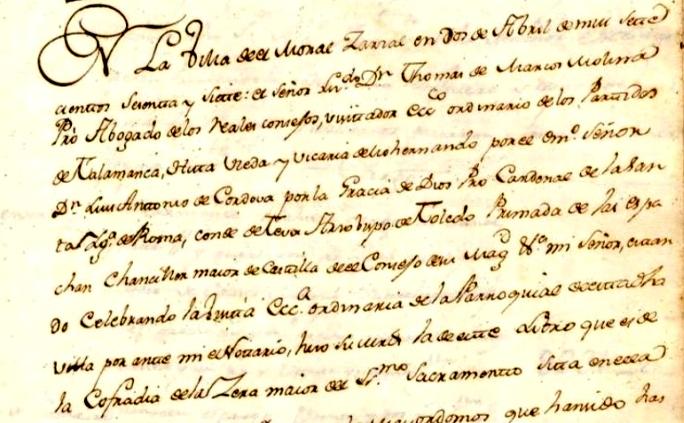 En La Villa de el Moral Zarzal en dos de Abril de mill sette
cientos Settenta y Siette: el Señor Lizdo Dn Thomas de Marcos Molina
Pro Abogado de los Reales consejos, visitador Ecco ordinario de los Partidos
de Talamanca, Hitta Uzeda y Vicaria de Buitrago por el Emo Señor
Dn Luis Antonio de Cordova por la Gracia de Dios Pro Cardenal de la San
ta Yga de Roma, conde de Teva Arzobispo de Toledo Primada de las Espa
Chanciller maior de Castilla de el Consejo de su Magd &a mi Señor, estan
do Celebrando la Visita Ecca ordinaria de la Parroquial de esta dha
villa por ante mi el Nottario, hizo su mrd la de este Libro que es de
la Cofradia de la Zera maior del SSmo Sacramento sita en ella
que han sido